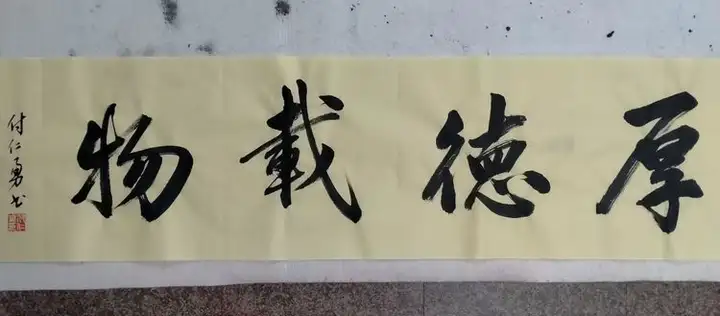 厚德載物
付仁勇书